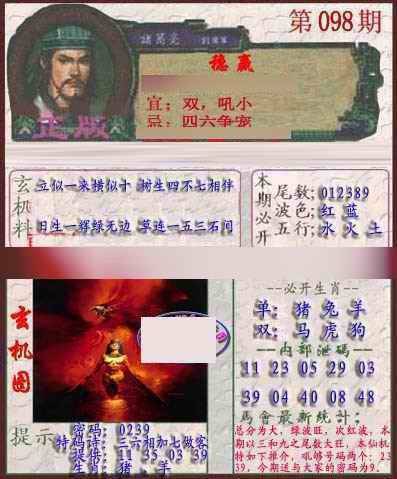 第098期
諸葛亮
稳赢
宜：双，吼小
忌：四六争宠
正版
玄机料
立似一来横似十 树生四不七相伴
日生一辉绿无边 草连一五三石问
本期必开
尾数：012389
波色：红 蓝
五行：水 火 土
玄机图
--必开生肖--
单：猪 兔 羊
双：马 虎 狗
--内部泄码--
11 23 05 29 03
39 04 40 08 48
馬會最新统计：
总分为大，绿波旺，次红波，本
期以三和九之尾数大旺，本仙机
特如下推介，吼够号码两个：23
39，今期送与大家的密码为9。
提示
密码：0239
特码诗：三六相加七做客
11 35 03 39
生肖：猪、羊